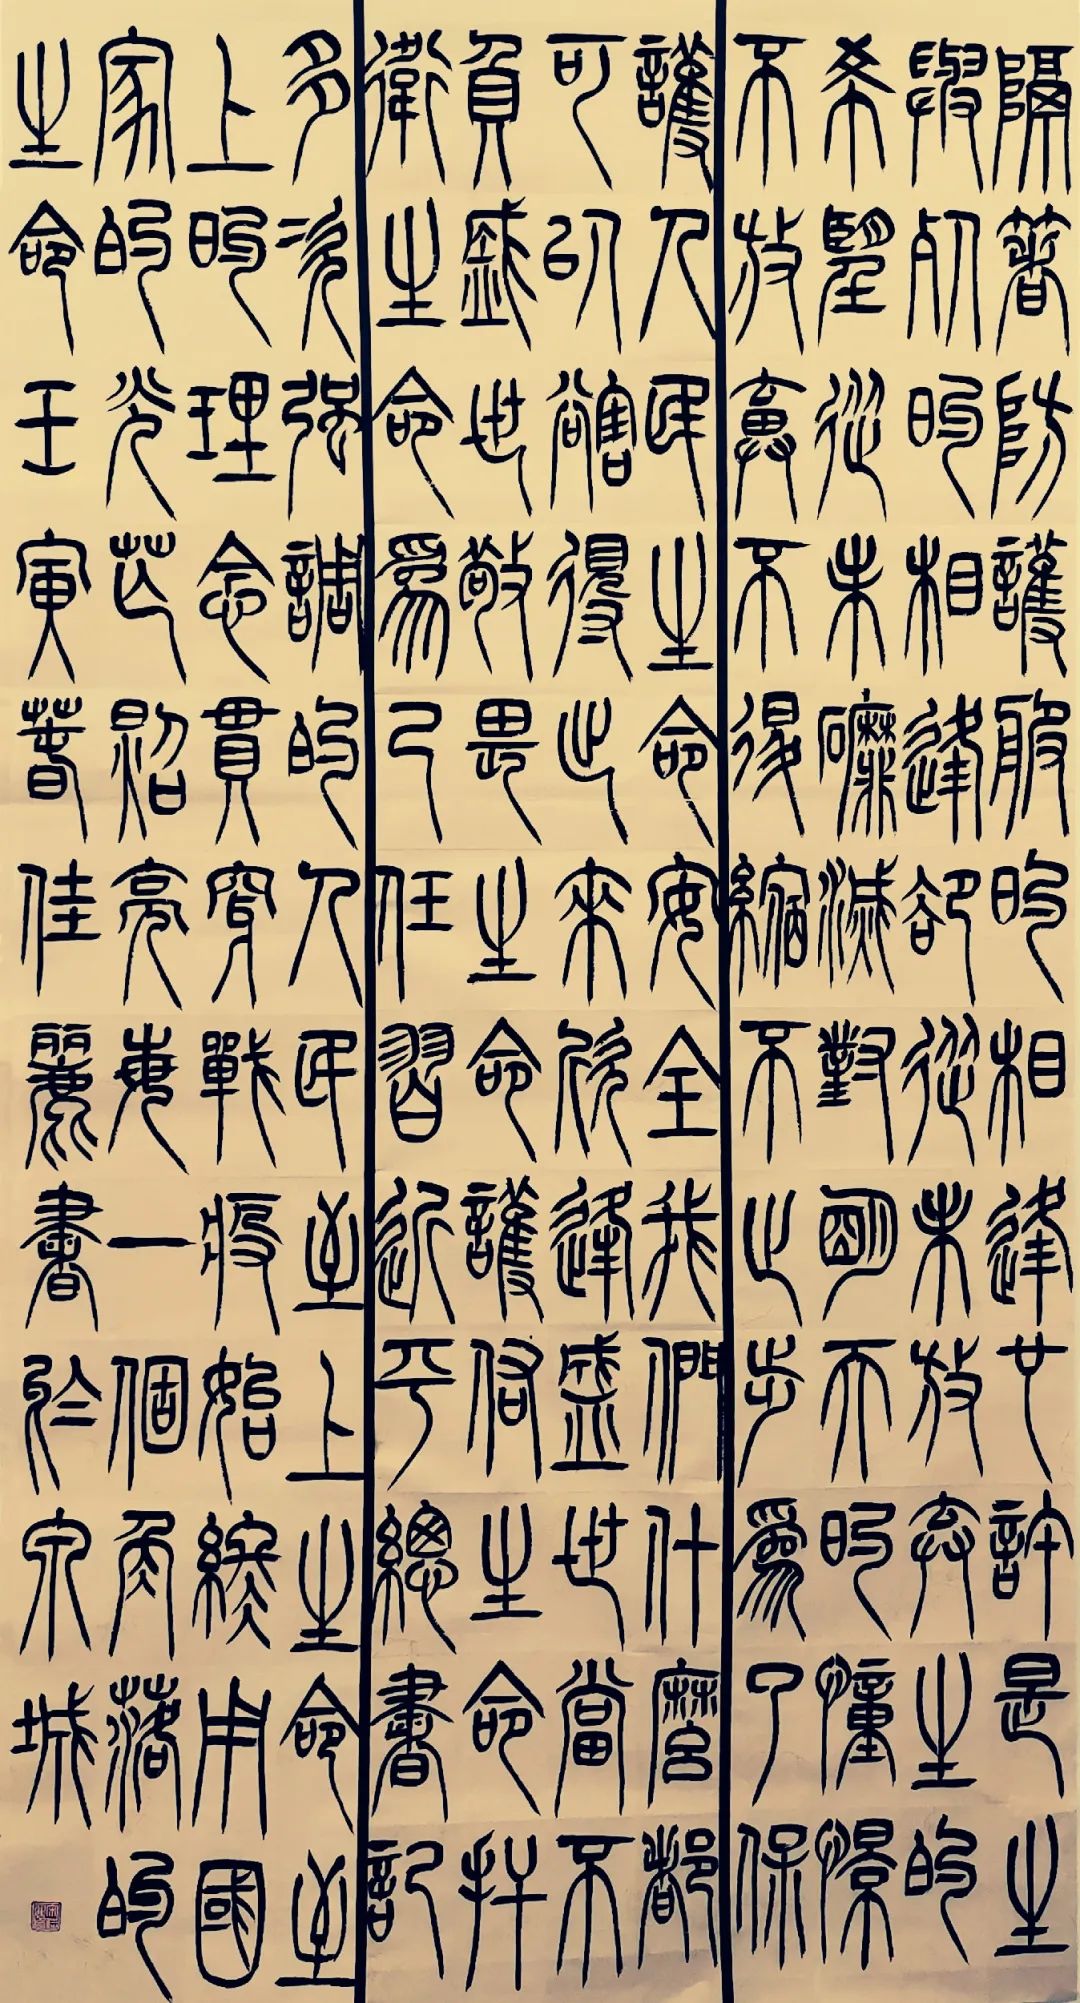 隔著防護服的相逢也許是生
與别的相逢卻從未放弃生的
希望從未磨滅對明天的憧憬
不放棄不退縮不止步為了保
護人民生命安全我們什麼都
可以豁得出來欣逢盛世當不
負盛世敬畏生命護佑生命捍
衛生命為己任習近平總書記
多次强調的人民至上生命至
上的理念貫穿戰疫始終用國
家的光芒照亮每一個角落的
生命壬寅春佳麗書於泉城